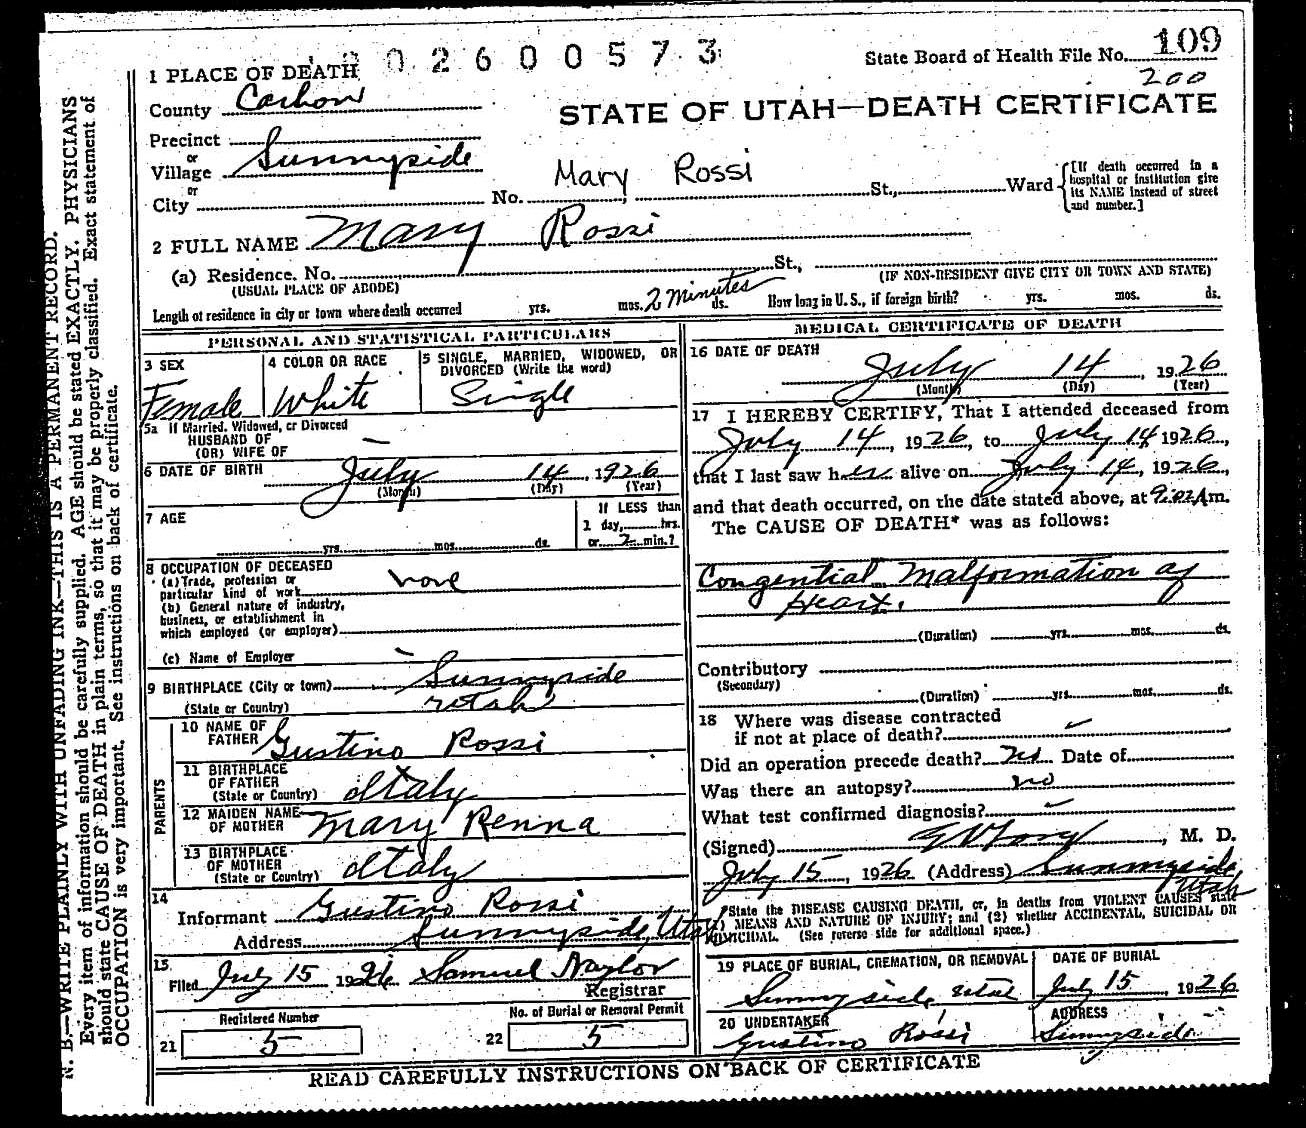 2 0 2 6 0 0 5 7 3
State Board of Health File No. 109
200
1 PLACE OF DEATH
County Carbon
STATE OF UTAH—DEATH CERTIFICATE
Precinct
or
Village Sunnyside
or
City
No. Mary Rossi St., Ward
[If death occurred in a hospital or institution give its NAME instead of street and number.]
2 FULL NAME Mary Rossi
(a) Residence. No. St.,
(USUAL PLACE OF ABODE)
(IF NON-RESIDENT GIVE CITY OR TOWN AND STATE)
Length of residence in city or town where death occurred yrs. mos. 2 Minutes ds. How long in U.S., if foreign birth? yrs. mos. ds.
PERSONAL AND STATISTICAL PARTICULARS
3 SEX
Female
4 COLOR OR RACE
White
5 SINGLE, MARRIED, WIDOWED, OR
DIVORCED (Write the word)
Single
5a If Married, Widowed, or Divorced
HUSBAND OF
(OR) WIFE OF —
6 DATE OF BIRTH July 14, 1926
(Month) (Day) (Year)
7 AGE
yrs. mos. ds.
If LESS than
1 day, hrs.
or 2 min.?
8 OCCUPATION OF DECEASED
(a) Trade, profession or
particular kind of work none
(b) General nature of industry,
business, or establishment in
which employed (or employer)
(c) Name of Employer
9 BIRTHPLACE (City or town) Sunnyside
(State or Country) Utah
PARENTS
10 NAME OF
FATHER Gustino Rossi
11 BIRTHPLACE
OF FATHER
(State or Country) Italy
12 MAIDEN NAME
OF MOTHER Mary Renna
13 BIRTHPLACE
OF MOTHER
(State or Country) Italy
14
Informant Gustino Rossi
Address Sunnyside, Utah
15
Filed July 15 1926 Samuel Naylor
Registrar
Registered Number
21 5
No. of Burial or Removal Permit
22 5
MEDICAL CERTIFICATE OF DEATH
16 DATE OF DEATH
July 14, 1926
(Month) (Day) (Year)
17 I HEREBY CERTIFY, That I attended deceased from
July 14, 1926, to July 14 1926,
that I last saw her alive on July 14, 1926,
and that death occurred, on the date stated above, at 9:02 Am.
The CAUSE OF DEATH* was as follows:
Congential Malformation of
Heart.
(Duration) yrs. mos. ds.
Contributory
(Secondary)
(Duration) yrs. mos. ds.
18 Where was disease contracted
if not at place of death?
Did an operation precede death? No Date of
Was there an autopsy? no
What test confirmed diagnosis?
(Signed) , M. D.
July 15, 1926 (Address) Sunnyside
Utah
*State the DISEASE CAUSING DEATH, or, in deaths from VIOLENT CAUSES state
(1) MEANS AND NATURE OF INJURY; and (2) whether ACCIDENTAL, SUICIDAL OR
HOMICIDAL. (See reverse side for additional space.)
19 PLACE OF BURIAL, CREMATION, OR REMOVAL
Sunnyside, Utah
DATE OF BURIAL
July 15, 1926
20 UNDERTAKER
Gustino Rossi
ADDRESS
Sunnyside
READ CAREFULLY INSTRUCTIONS ON BACK OF CERTIFICATE
N. B.—WRITE PLAINLY WITH UNFADING INK—THIS IS A PERMANENT RECORD.
Every item of information should be carefully supplied. AGE should be stated EXACTLY. PHYSICIANS
should state CAUSE OF DEATH in plain terms, so that it may be properly classified. Exact statement of
OCCUPATION is very important. See instructions on back of certificate.